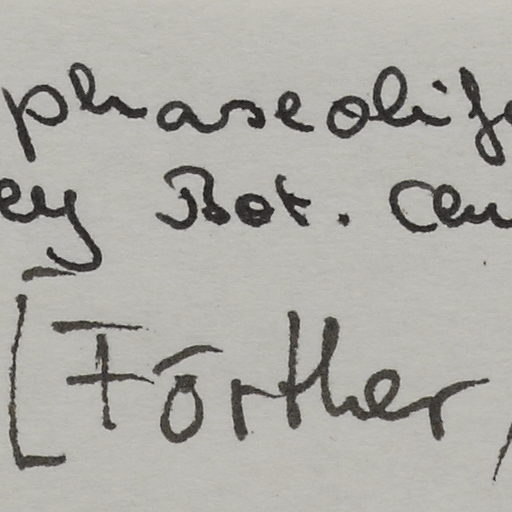 phaseolifo
ey Bot. Cen
[Förther